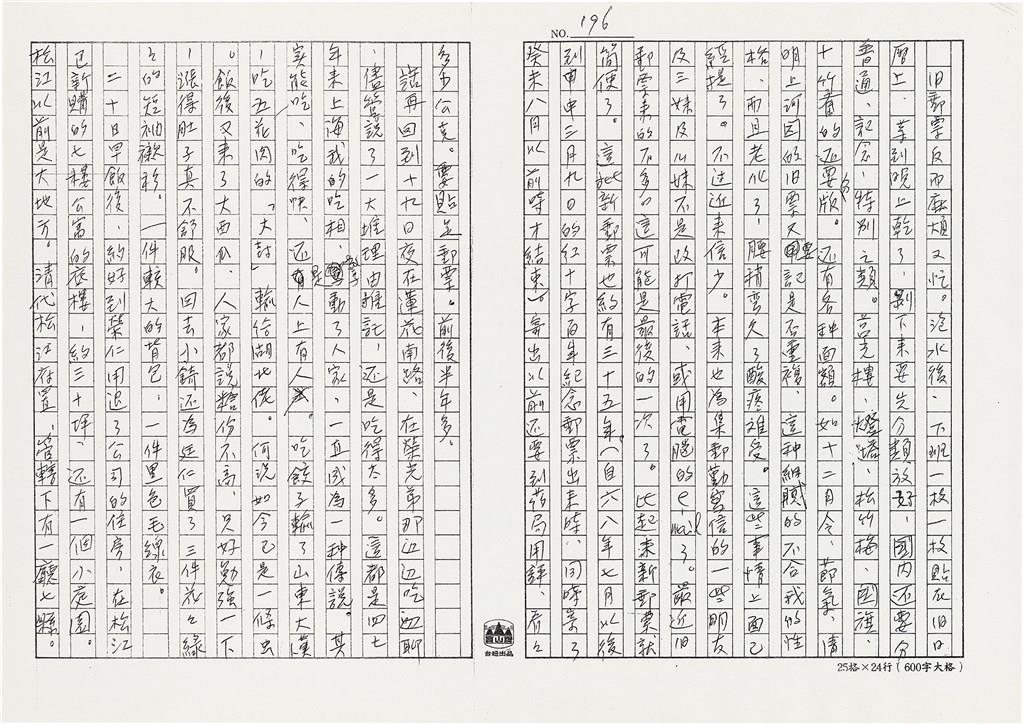 NO. 196
旧郵票反而麻煩又忙。泡水後、下班一枚一枚貼在旧日
曆上、等到晚上乾了、剝下來要先分類放好、國內还要分
普通、記念、特別之類。莒光樓、燈塔、松竹梅、國旗、
十竹齋的还要分版。还有各种面額。如十二月令、節氣、清
明上河図的旧票又要記是否重複、這种細膩的不合我的性
格、而且老化了，腰稍弯久了酸疼难受。這些事情上面已
經提了。不过近來信少。本来也為集郵勤寫信的一些朋友
及三妹及八妹不是改打電話、或用電腦的e-mail了。最近旧
郵票来的不多、這可能是最後的一次了。比起来新郵費就
簡便了。這批新郵票也約有三十五年（自六八年七月以後
到申申三月九日的紅十字百年紀念郵票出来時、同時寄了
癸未八月以前等才結束）。寄出以前还要到葯局用評、齐
多少公克。要貼足郵票。前後半年多。
話再回到十九日夜在蓮花南路、在榮光弟那边边吃边聊
、儘管說了一大堆理由推託、还是吃得太多。這都是四七
年来上海我的吃相、驚動了人家、一直成為一种傳說。其
实能吃、吃得快、还是人上有人。吃餃子輸了山東大漢
，吃五花肉的「大封」輸給湖北佬。何況如今已是一條虫
。飯後又来了大西瓜、人家都說糖份不高、只好勉強一下
，漲得肚子真不舒服。回去小錡还為廷仁買了三件花々綠
々的短袖襯衫。一件較大的背包、一件黑色毛線衣。
二十日早飯後、約好到榮仁用退了公司的住房、在松江
已新購的七樓公寓的底樓，約三十坪、还有一個小庭園。
松江以前是大地方。清代松江府置、管轄下有一廳七縣。
台經出品
25格×24行（600字大格）